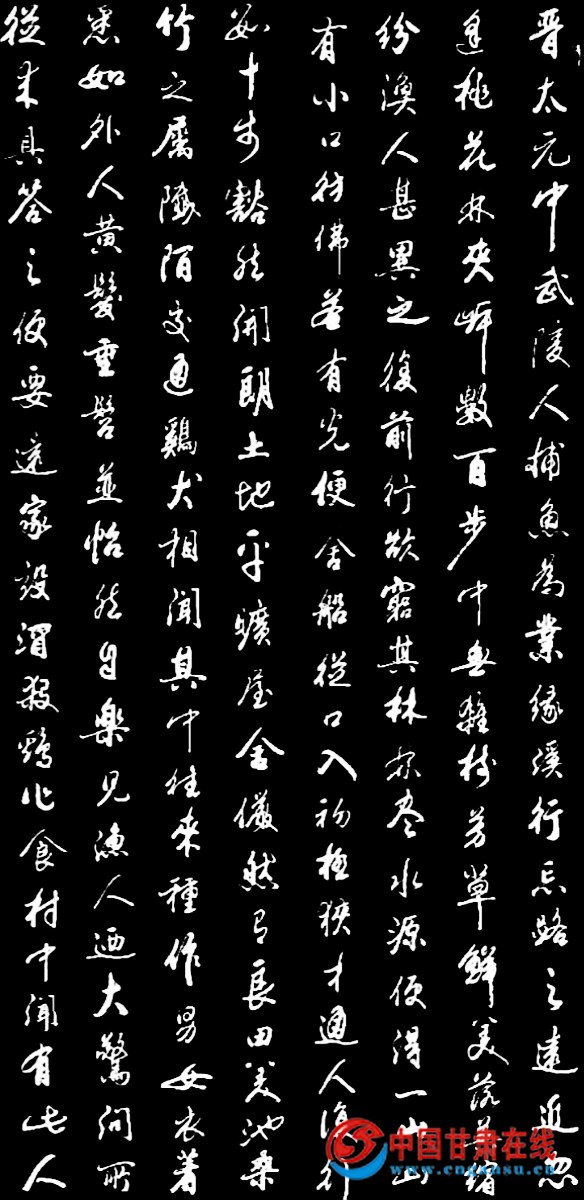 晉太元中武陵人捕魚為業緣溪行忘路之遠近忽
逢桃花林夾岸數百步中無雜樹芳草鮮美落英繽
紛漁人甚異之復前行欲窮其林林尽水源便得一山山
有小口彷彿若有光便舍船從口入初極狹才通人復行
數十步豁然開朗土地平曠屋舍儼然有良田美池桑
竹之屬阡陌交通鷄犬相聞其中往來種作男女衣著
悉如外人黃髮垂髫並怡然自樂見漁人迺大驚問所
從来具答之便要還家設酒殺鷄作食村中聞有此人
中国甘肃在线
www.cngansu.cn